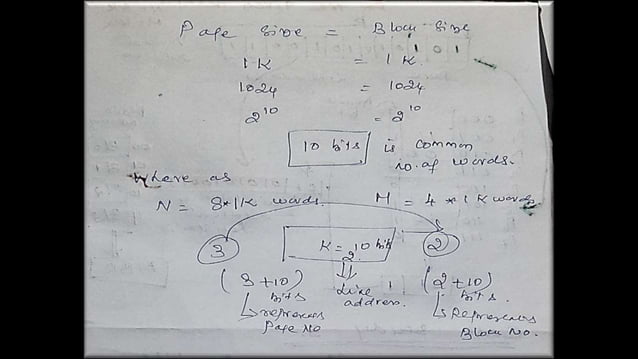 Page size = Block size
1K = 1K
1024 = 1024
2^10 = 2^10
10 bits is common
no. of words.
Where as
N = 8*1K words. M = 4*1K words.
3 K = 2^10 bits 2
(3+10) bits Line address. (2+10) bits.
represents Page No represents Block No.